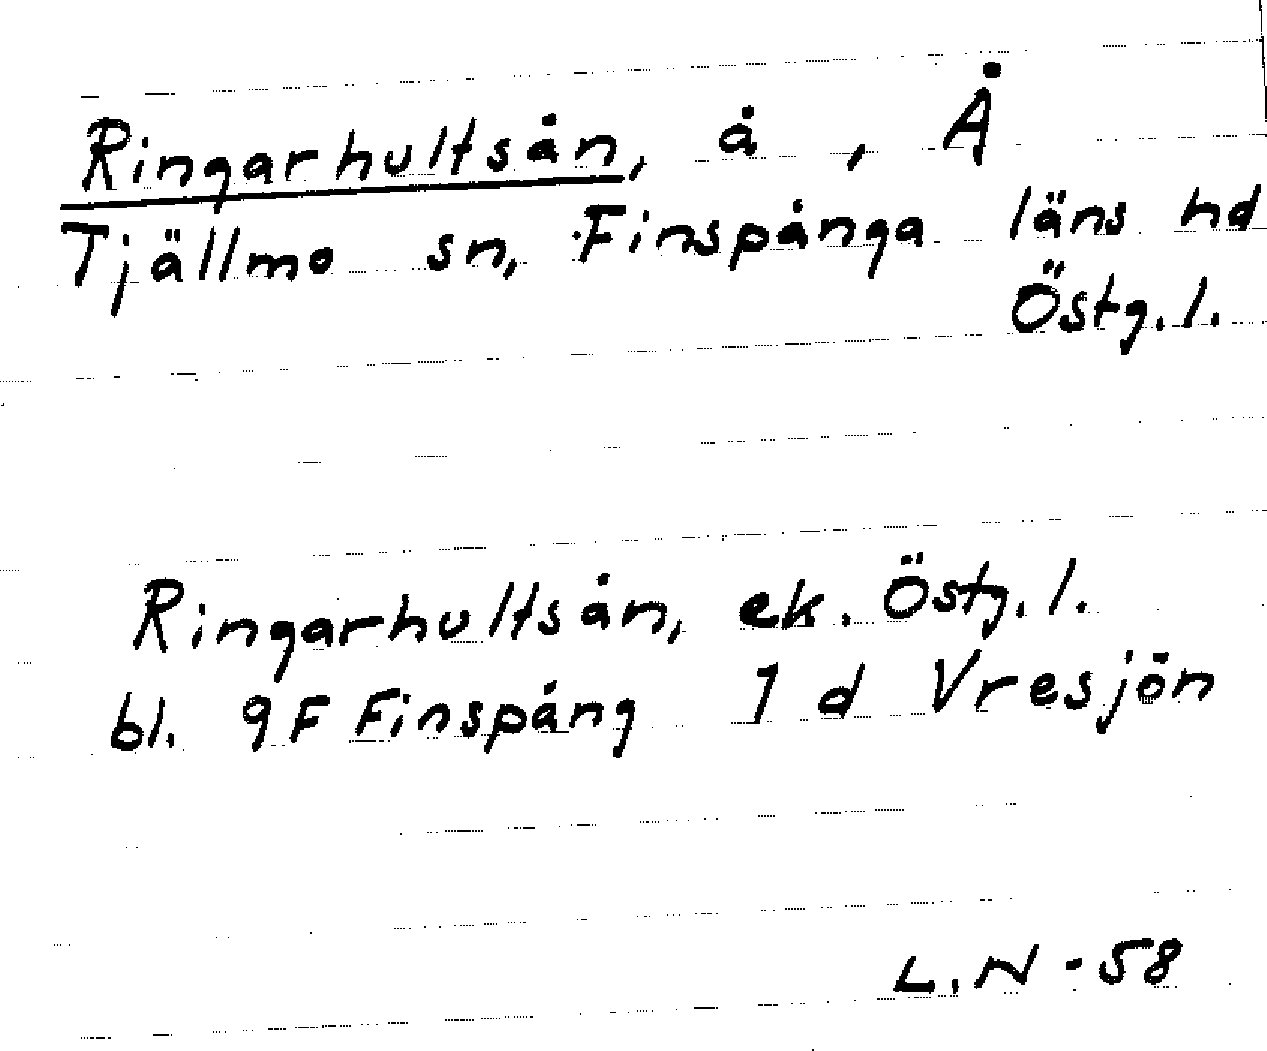 Ringarhultsån, å , Å
Tjällmo sn, Finspånga läns hd
Östg. l.
Ringarhultsån, ek. Östg. l.
bl. 9F Finspång 1 d Vresjön
L. N - 58